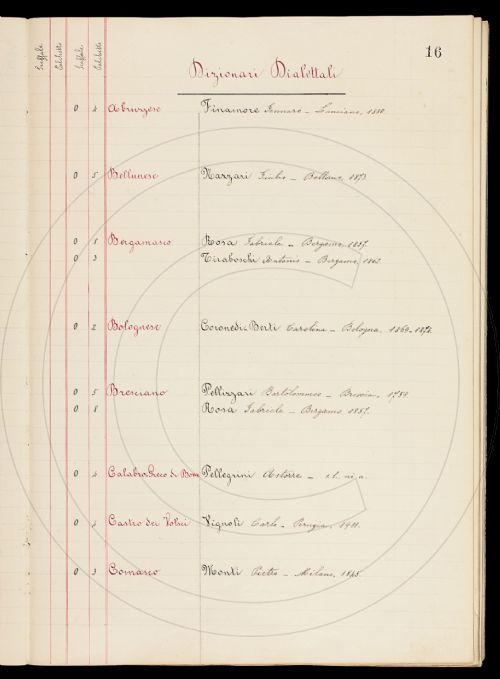 16
Scaffale
Palchetto
Scaffale
Palchetto
Dizionari Dialettali
0 4 Abruzzese Finamore Gennaro – Lanciano, 1880.
0 5 Bellunese Nazzari Giulio – Belluno, 1873
0 8 Bergamasco Rosa Gabriele – Bergamo, 1857.
0 3 Tiraboschi Antonio – Bergamo, 1863.
0 2 Bolognese Coronedi-Berti Carolina – Bologna, 1869-1872.
0 5 Bresciano Pellizzari Bartolommeo – Brescia, 1759.
0 8 Rosa Gabriele – Bergamo, 1857.
0 4 Calabro-Greco di Bova Pellegrini Astorre –
0 4 Castro dei Volsci Vignoli Carlo – Perugia, 1911.
0 3 Comasco Monti Pietro – Milano, 1845.